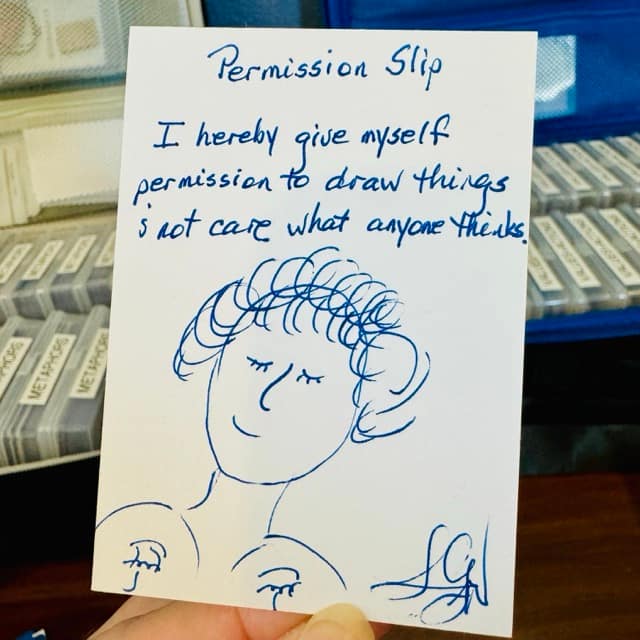 Permission Slip
I hereby give myself
permission to draw things
& not care what anyone thinks.
METAPHORS
METAPHORS